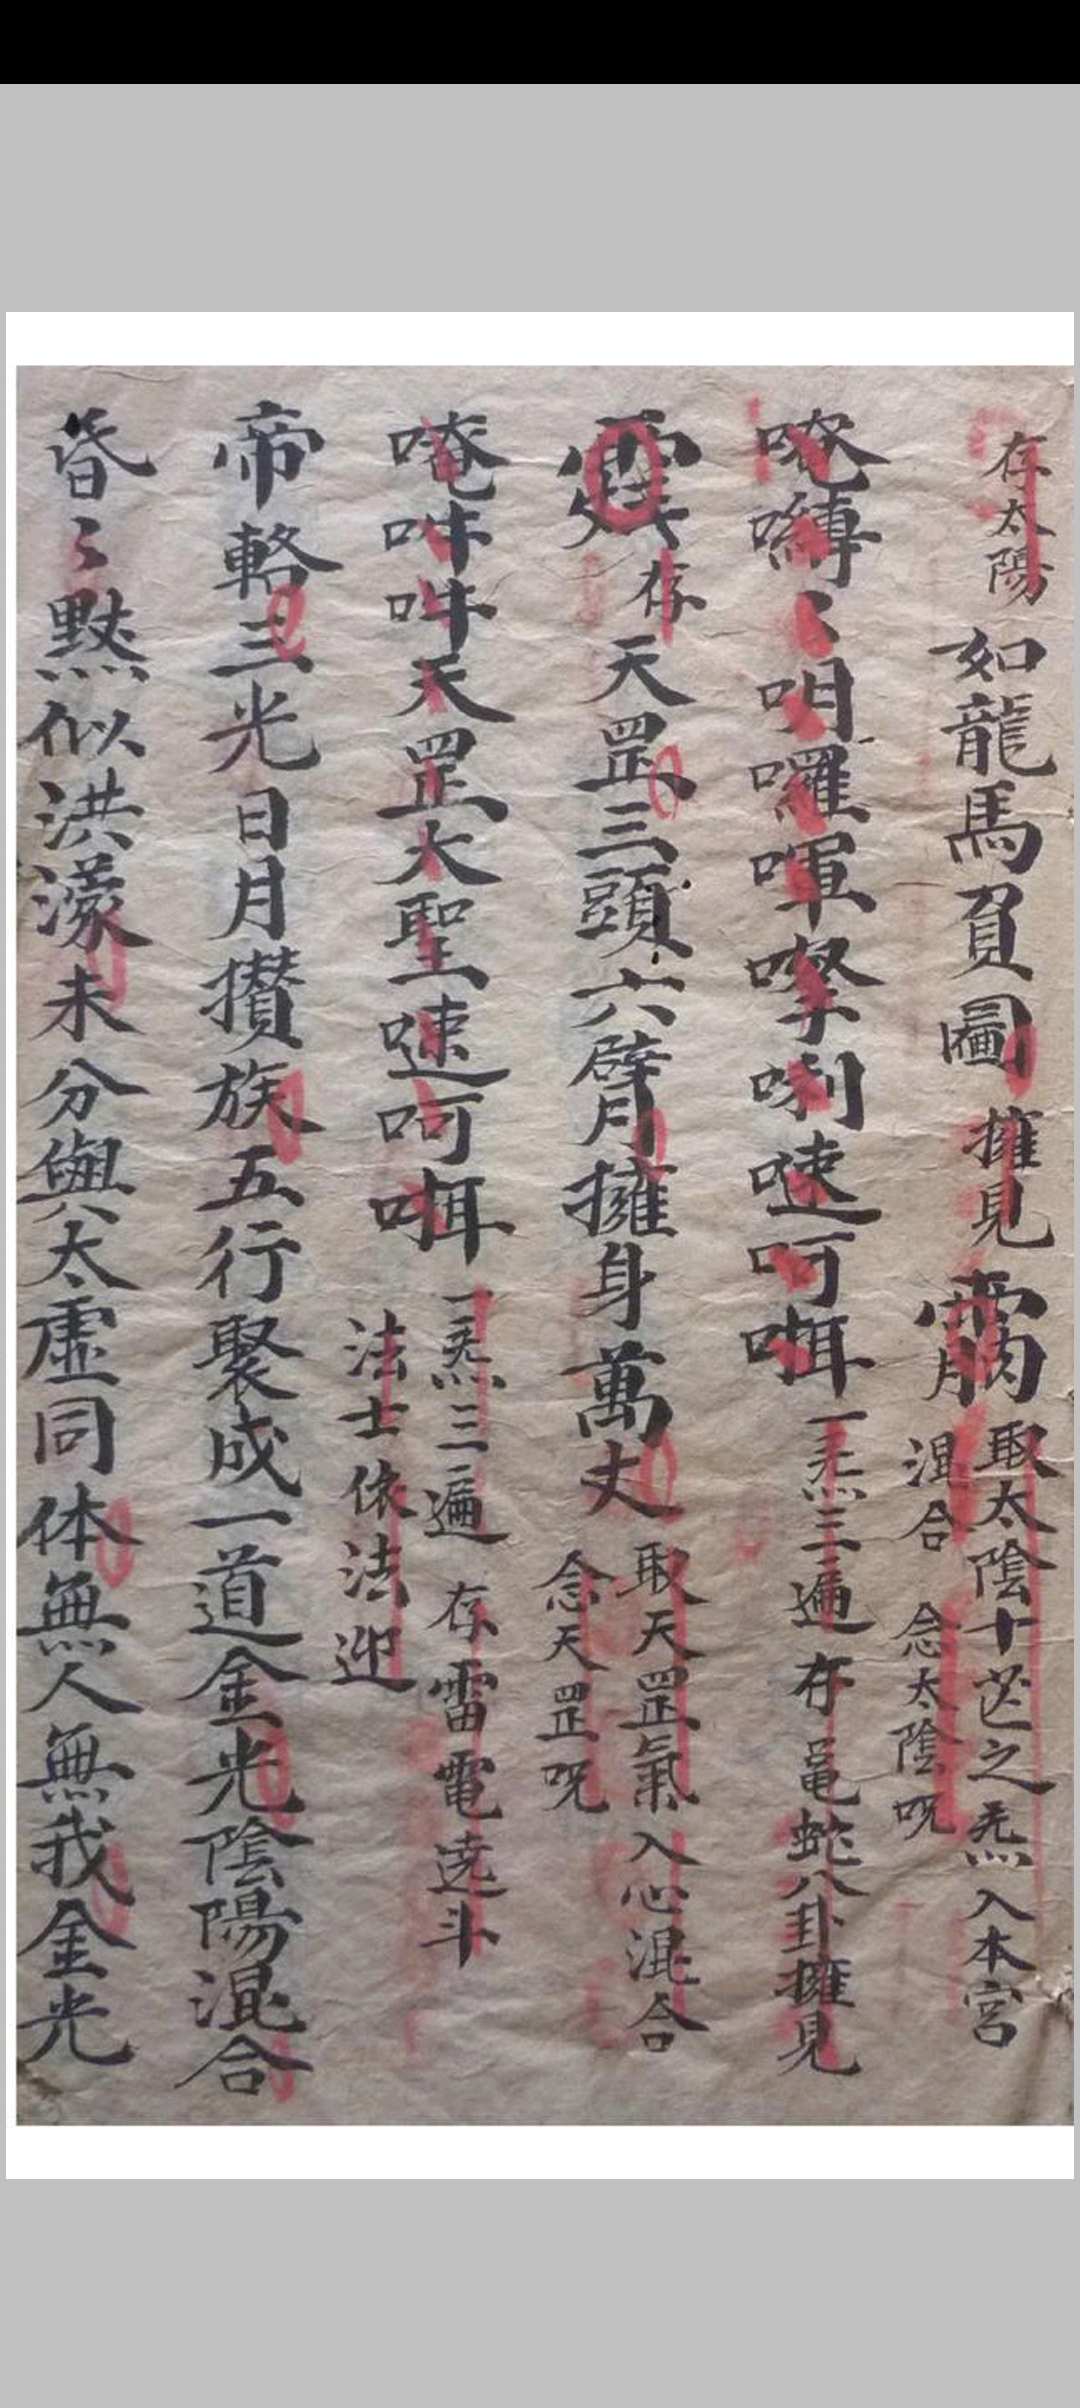 存太陽 如龍馬負圖 擁見 取太陰十芒之炁入本宮
混合 念太陰呪
唵嚩〻呬囉㖮嚟唎速呵㖇 一炁三遍 存黽蛇八卦擁見
存天罡三頭六臂擁身萬丈 取天罡氣入心混合
念天罡呪
唵吽吽天罡大聖速呵㖇 一炁三遍 存雷電遶斗
法士依法迎
帝輅三光日月攢族五行聚成一道金光陰陽混合
昏〻默似洪濛未分與太虛同体無人無我金光